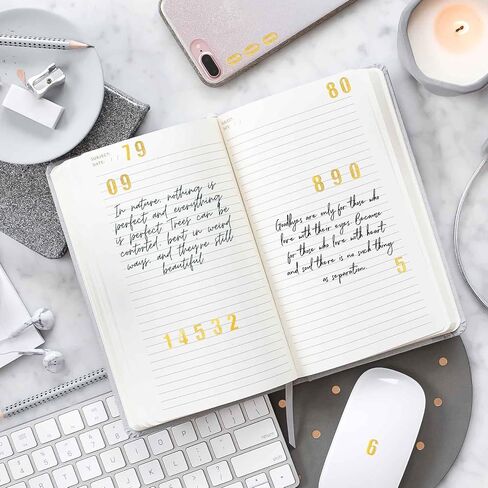 SUBJECT: 79
DATE: / /
09
In nature, nothing is
perfect and everything
is perfect. Trees can be
contorted, bent in weird
ways, and they're still
beautiful
14532
80
890
Goodbyes are only for those who
love with their eyes. Because
for those who love with heart
and soul there is no such thing
as separation.
5
6